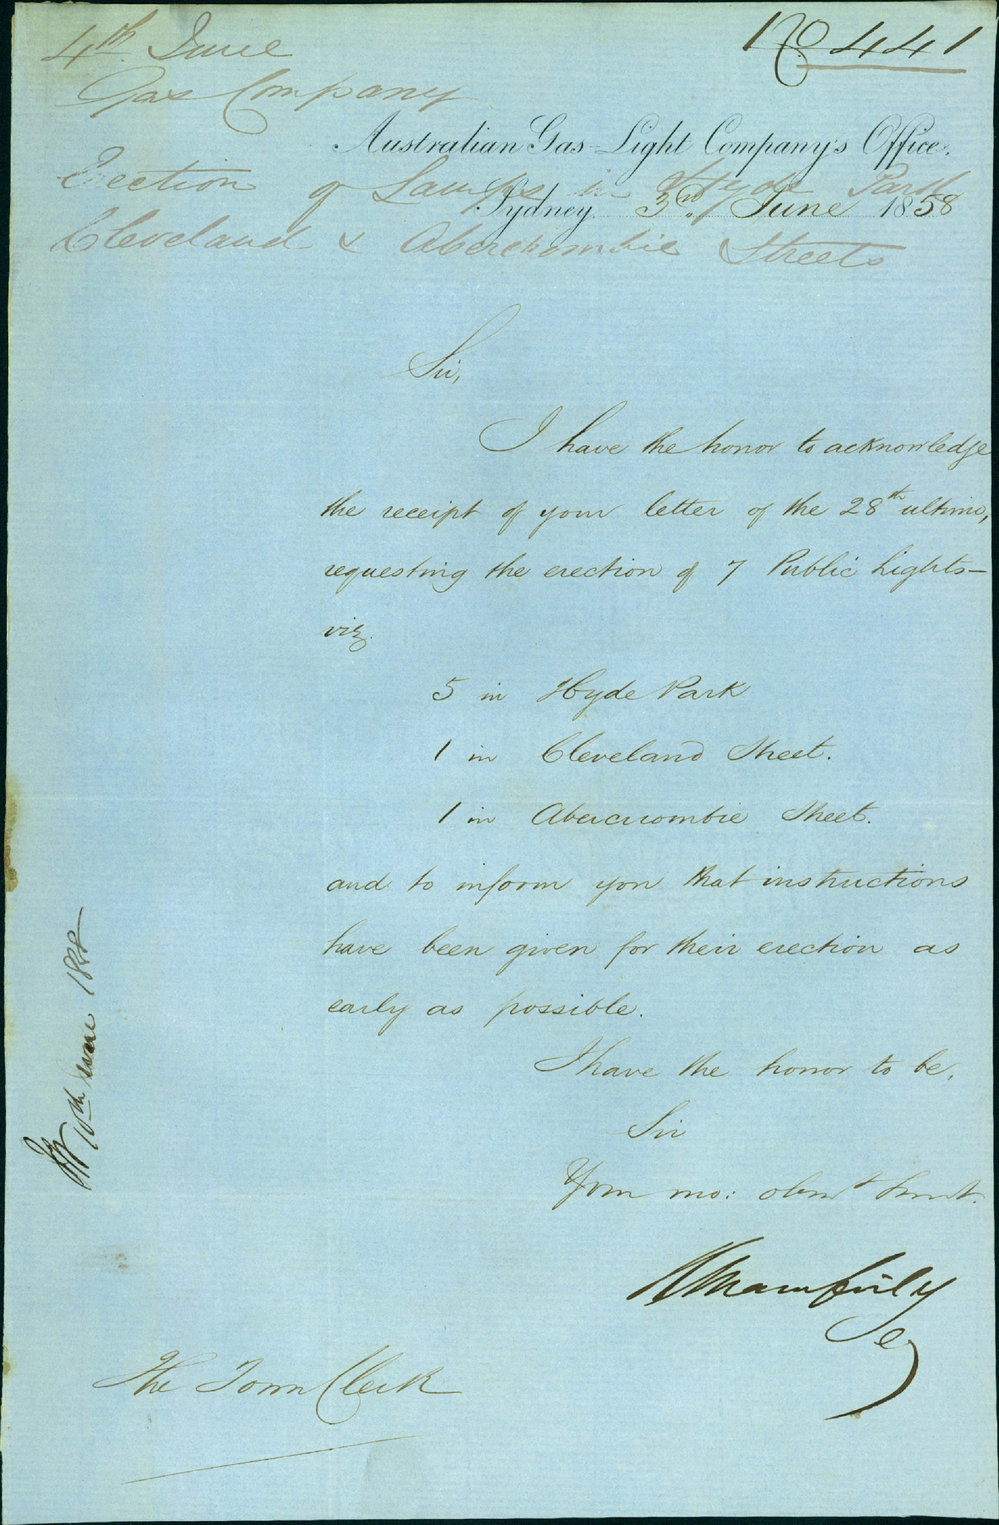 4th June
No 441
Gas Company
Australian Gas-Light Company's Office.
Erection of Lamps in Hyde Park
Sydney 3rd. June 1858
Cleveland & Abercrombie Streets
Sir,
I have the honor to acknowledge
the receipt of your letter of the 28th ultimo,
requesting the erection of 7 Public Lights-
viz.
5 in Hyde Park
1 in Cleveland Street.
1 in Abercrombie Street.
and to inform you that instructions
have been given for their erection as
early as possible.
I have the honor to be,
Sir
Your mo: obnt Servt.
The Town Clerk
10th June 1858